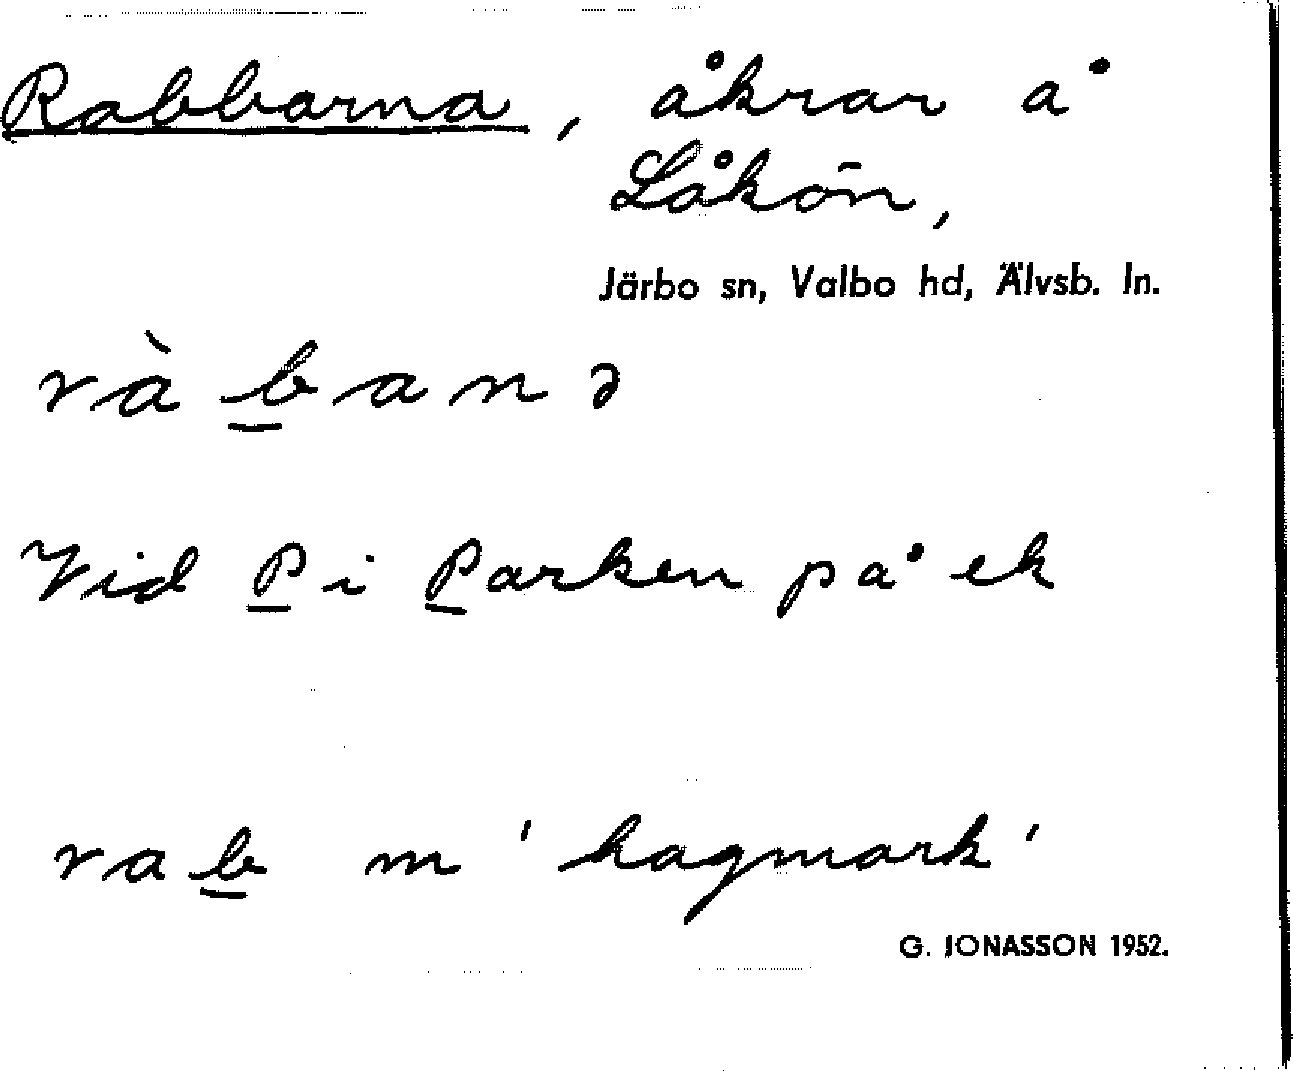 Rabbarna, åkrar å
Låkōn,
Järbo sn, Valbo hd, Älvsb. ln.
ràb̲anə
Vid P̲ i P̲arken på ek
rab̲ m 'hagmark'
G. JONASSON 1952.